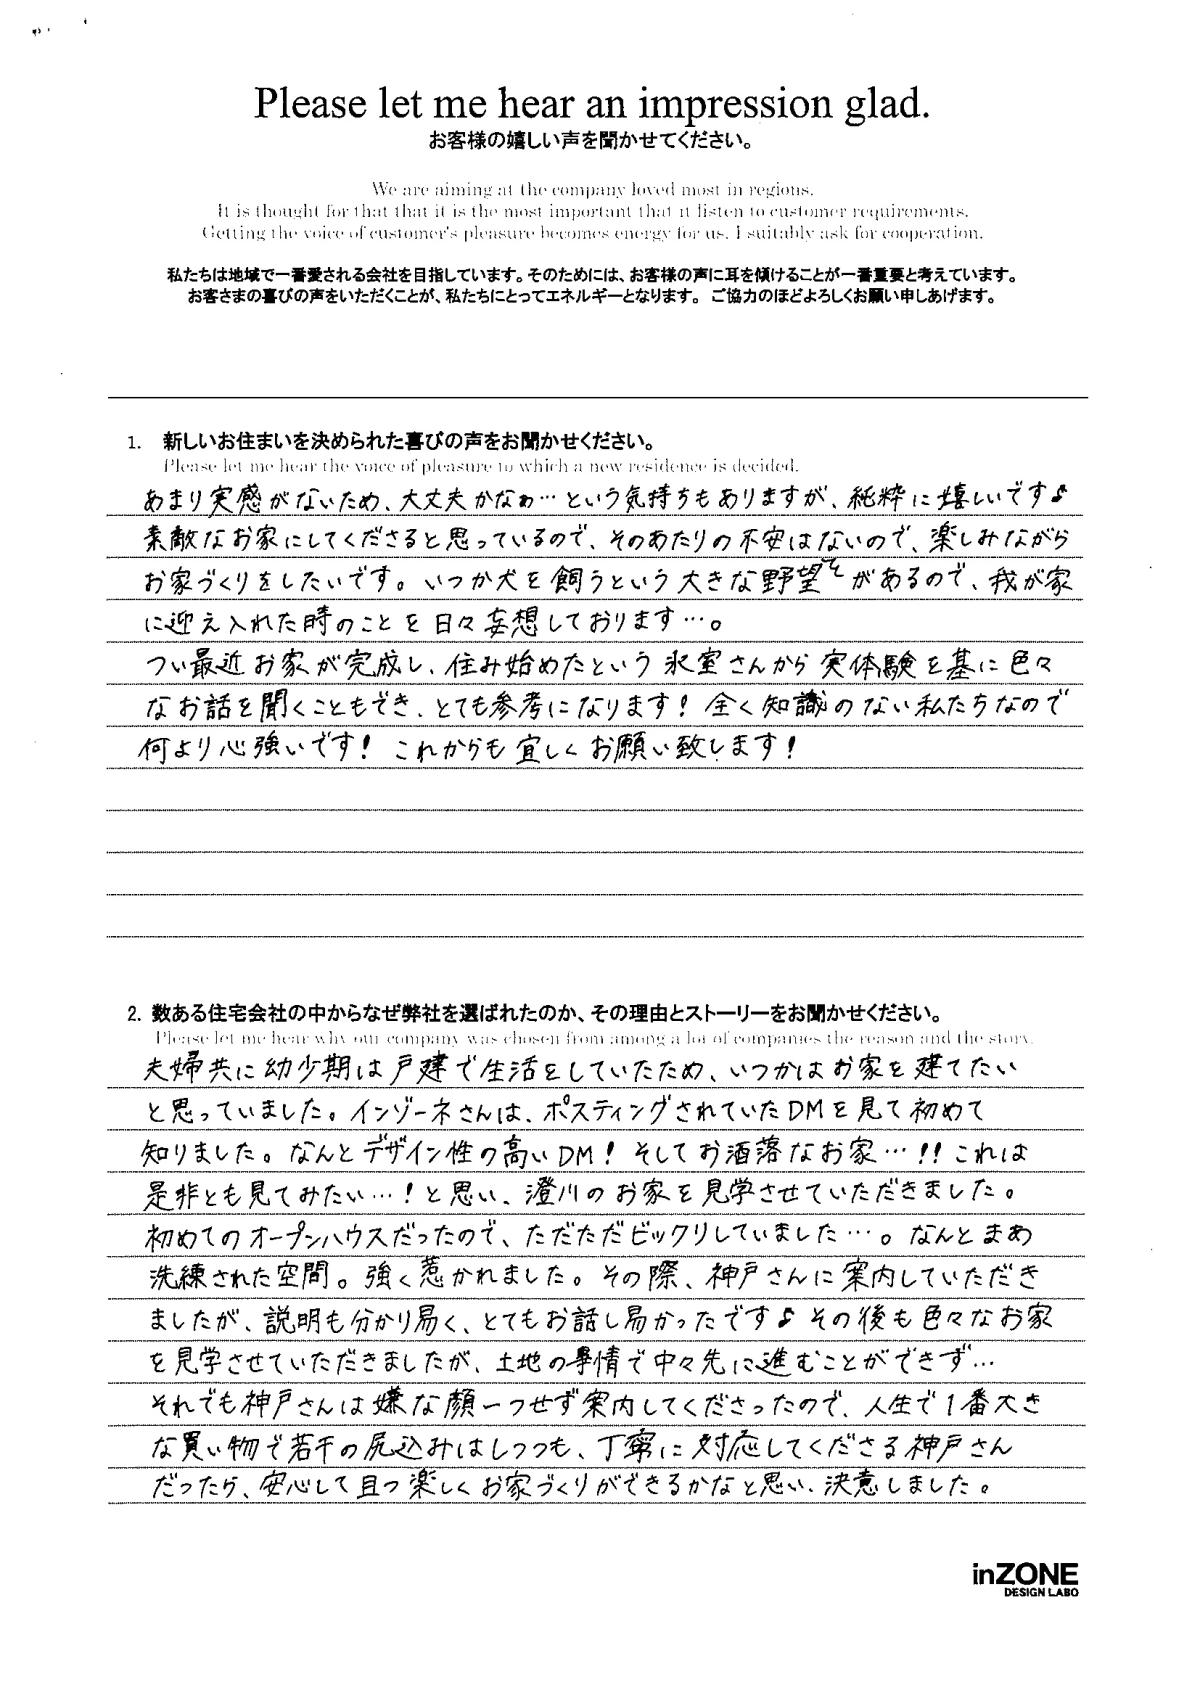 Please let me hear an impression glad.
お客様の嬉しい声を聞かせてください。
We are aiming at the company loved most in regions.
It is thought for that that it is the most important that it listen to customer requirements.
Getting the voice of customer's pleasure becomes energy for us. I suitably ask for cooperation.
私たちは地域で一番愛される会社を目指しています。そのためには、お客様の声に耳を傾けることが一番重要と考えています。
お客さまの喜びの声をいただくことが、私たちにとってエネルギーとなります。 ご協力のほどよろしくお願い申しあげます。
1. 新しいお住まいを決められた喜びの声をお聞かせください。
Please let me hear the voice of pleasure to which a new residence is decided.
あまり実感がないため、大丈夫かなぁ…という気持ちもありますが、純粋に嬉しいです♪
素敵なお家にしてくださると思っているので、そのあたりの不安はないので、楽しみながら
お家づくりをしたいです。いつか犬を飼うという大きな野望もがあるので、我が家
に迎え入れた時のことを日々妄想しております…。
つい最近お家が完成し、住み始めたという氷室さんから実体験を基に色々
なお話を聞くこともでき、とても参考になります！全く知識のない私たちなので
何より心強いです！これからも宜しくお願い致します！
2. 数ある住宅会社の中からなぜ弊社を選ばれたのか、その理由とストーリーをお聞かせください。
Please let me hear why our company was chosen from among a lot of companies the reason and the story.
夫婦共に幼少期は戸建で生活をしていたため、いつかはお家を建てたい
と思っていました。インゾーネさんは、ポスティングされていたDMを見て初めて
知りました。なんとデザイン性の高いDM！そしてお洒落なお家…!!これは
是非とも見てみたい…！と思い、澄川のお家を見学させていただきました。
初めてのオープンハウスだったので、ただただビックリしていました…。なんとまあ
洗練された空間。強く惹かれました。その際、神戸さんに案内していただき
ましたが、説明も分かり易く、とてもお話し易かったです♪その後も色々なお家
を見学させていただきましたが、土地の事情で中々先に進むことができず…
それでも神戸さんは嫌な顔一つせず案内してくださったので、人生で1番大き
な買い物で若干の尻込みはしつつも、丁寧に対応してくださる神戸さん
だったら、安心して且つ楽しくお家づくりができるかなと思い、決意しました。
inZONE
DESIGN LABO